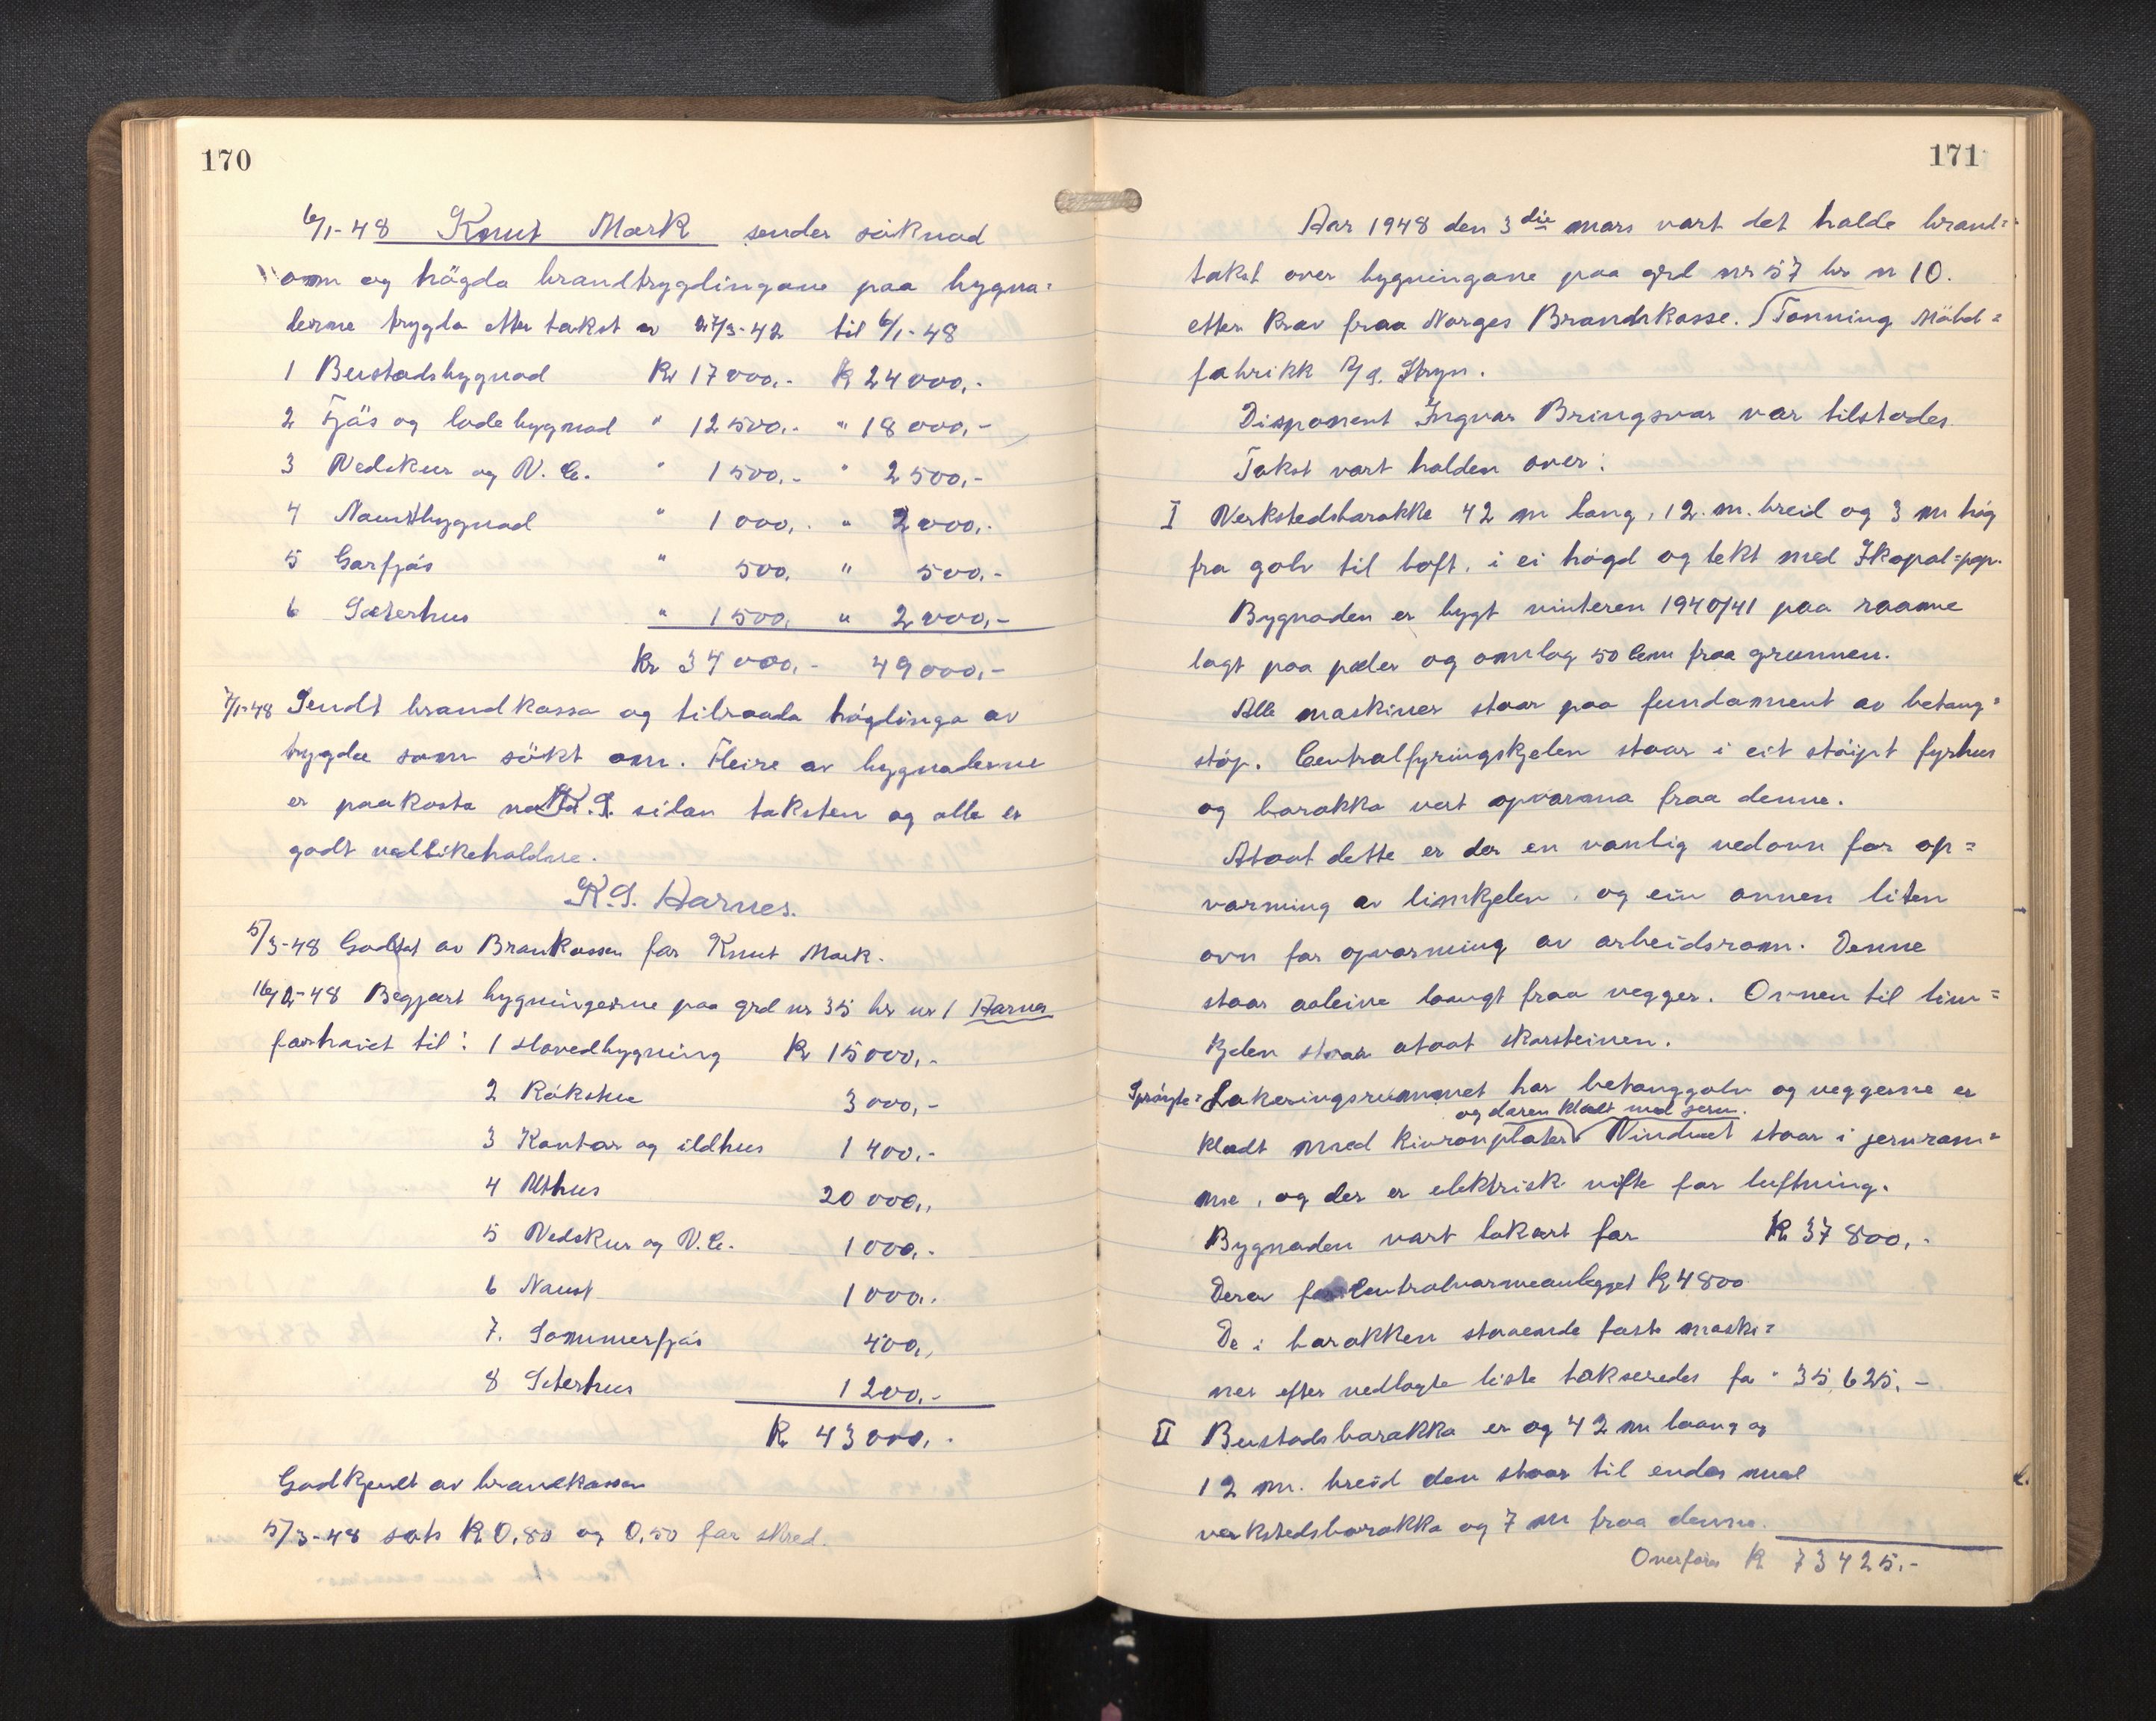 170
6/1-48 Knut Mork sender söknad
om og högda brandtrygdingane paa bygna=
derne trygda etter takst av 27/3-42 til 6/1-48
1 Bustadsbygnad Kr 17000,- Kr 24000,-
2 Fjös og lodebygnad " 12500,- " 18000,-
3 Vedskur og V.C. " 1500,- " 2500,-
4 Naustbygnad " 1000,- " 2000,-
5 Garfjös " 500, " 500,-
6 Sæterhus " 1500, " 2000,-
Kr 34000,- 49000,-
7/1-48 Sendt brandkassa og tilraada högdinga av
trygda som sökt om. Fleire av bygnaderne
er paakosta sidan taksten og alle er
godt vedlikehaldne.
K.S. Aarnes.
5/3-48 Godtat av Brankassen for Knut Mork.
16/2-48 Begjært bygningerne paa grd nr 35 br nr 1 Aarnes
forhöiet til: 1 Hovedbygning Kr 15000,-
2 Rökstue 3000,-
3 Kontor og ildhus 1400,-
4 Uthus 20000,-
5 Vedskur og V.C. 1000,-
6 Naust 1000,-
7. Sommerfjös 400,-
8 Seterhus 1200,-
Kr 43000,-
Godkjendt av brandkassen
5/3-48 sats Kr 0,80 og 0,50 for skred.
171
Aar 1948 den 3die mars vart det halde brand=
takst over bygningane paa grd nr 57 br nr 10.
etter krav fraa Norges Brandkasse. (Tonning Möbel=
fabrikk A/S. Stryn.
Disponent Ingvar Bringsvor var tilstades.
Takst vart halden over:
I Verkstedsbarakke 42 m lang, 12 m. breid og 3 m hög
fra golv til loft, i ei högd og tekt med Ikopal=pap.
Bygnaden er bygt vinteren 1940/41 paa raame
lagt paa pæler og omlag 50 Cem fraa grunnen.
Alle maskiner staar paa fundament av betong=
stöp. Centralfyringskjelen staar i eit stöipt fyrhus
og barakka vert opvarma fraa denne.
Ataat dette er der en vanlig vedovn for op=
varming av limkjelen, og ein annen liten
ovn for opvarming av arbeidsrom. Denne
staar aaleine laangt fraa vegger. Ovnen til lim=
kjelen staar ataat skorsteinen.
Spröyte= Lakeringsrummet har betonggolv og veggerne er
og dören klædt med jern.
klædt med kivronplater Vinduet staar i jernram=
me, og der er elektrisk vifte for luftning.
Bygnaden vart taksert for Kr 37800,-
Derav for Centralvarmeanlegget Kr 4800
De i barakken staaende faste maski=
ner efter vedlagte liste takseredes for " 35,625,-
II Bustadsbarakka er og 42 m laang og
12 m. breid den staar til endes med
verkstedsbarakka og 7 m fraa denne.
Overföres Kr 73425,-